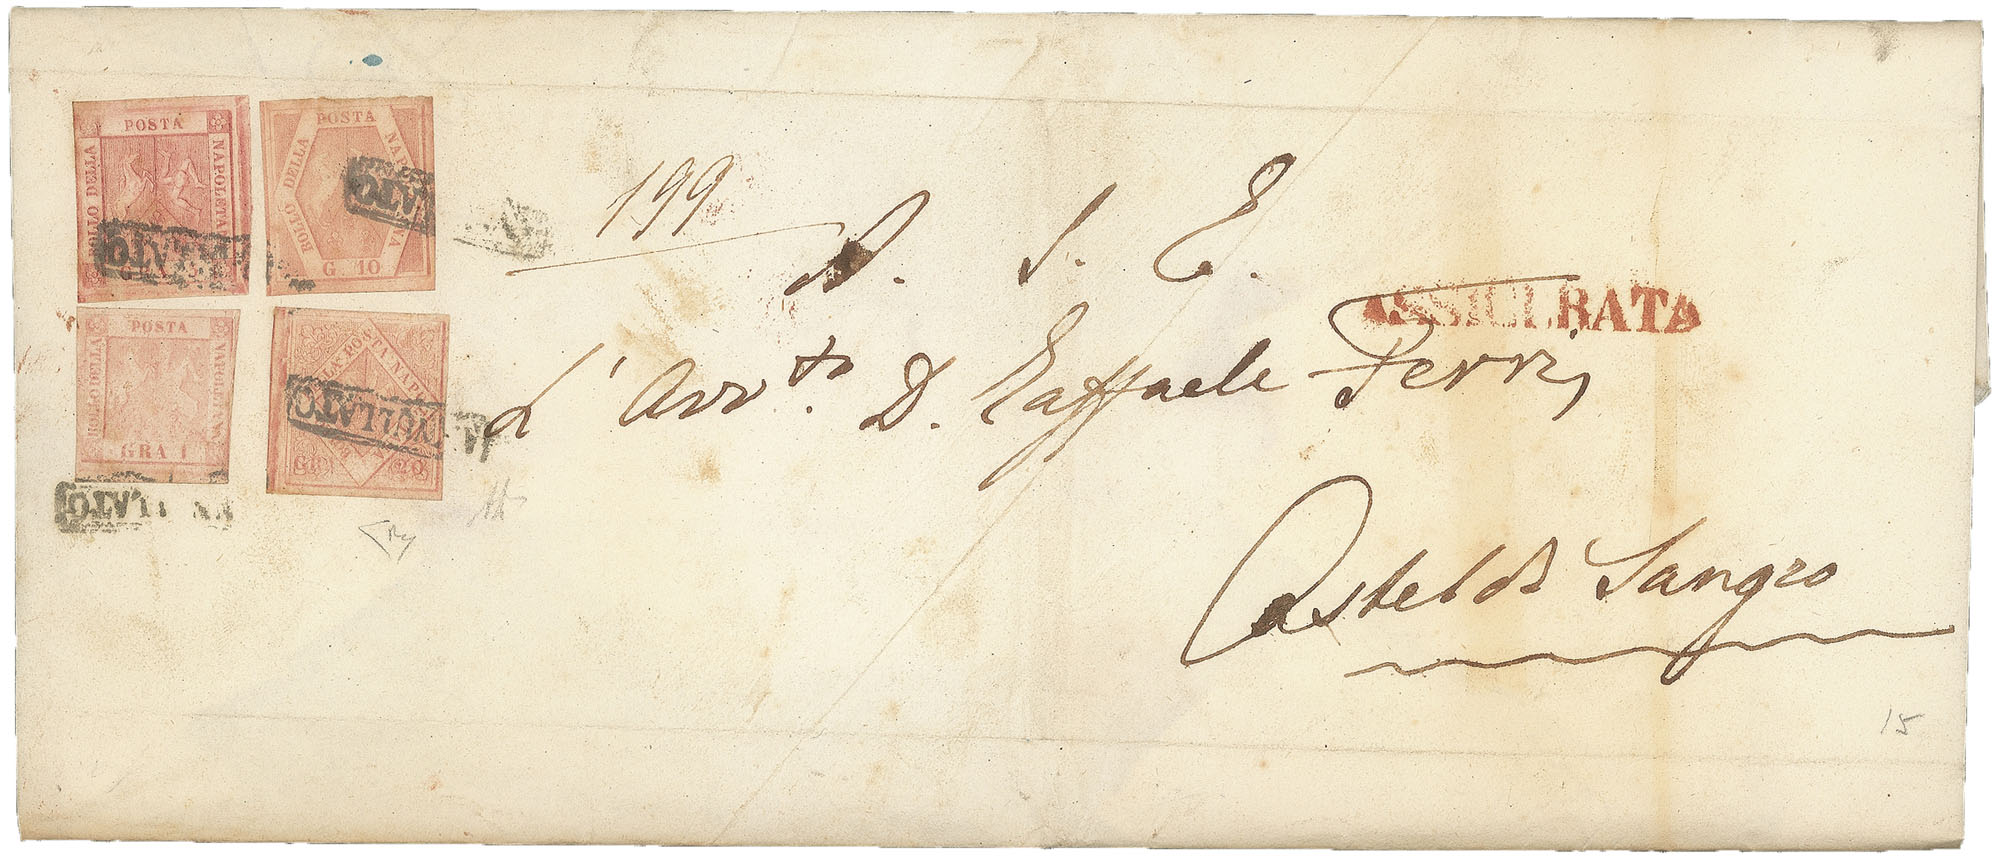 POSTA
BOLLO DELLA
NAPOLETANA
POSTA
BOLLO DELLA
NAPOLETANA
G. 10
POSTA
BOLLO DELLA
NAPOLETANA
GRA 1
POSTA NAPO
GR 20
ANNULLATO
199
A. S. E.
ASSICURATA
L' Avv.to D. Raffaele Ferri,
Castel di Sangro
15